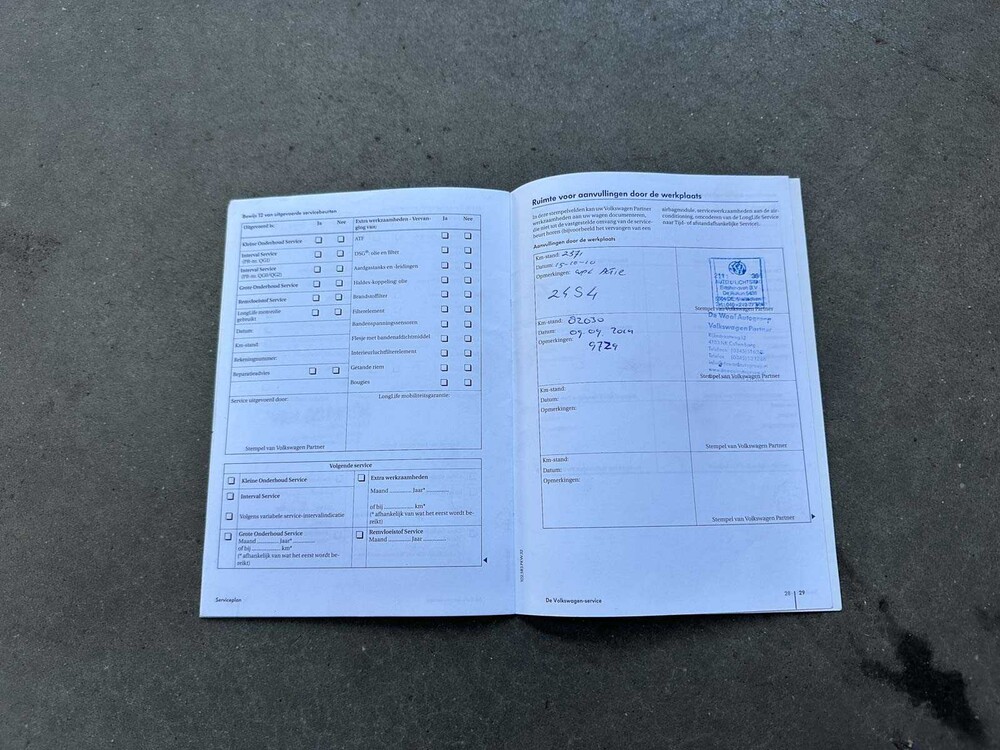 Bewijs 12 van uitgevoerde servicebeurten
Uitgevoerd is: Ja Nee
Kleine Onderhoud Service
Interval Service
(PR-nr. QG1)
Interval Service
(PR-nr. QG0/QG2)
Grote Onderhoud Service
Remvloeistof Service
LongLife memorie
gebruikt
Datum:
Km-stand:
Rekeningnummer:
Reparatieadvies
Extra werkzaamheden - Vervan-
ging van: Ja Nee
ATF
DSG®: olie en filter
Aardgastanks en -leidingen
Haldex-koppeling: olie
Brandstoffilter
Filterelement
Bandenspanningssensoren
Flesje met bandenafdichtmiddel
Interieurluchtfilterelement
Getande riem
Bougies
Service uitgevoerd door:
LongLife mobiliteitsgarantie
Stempel van Volkswagen Partner
Volgende service
Kleine Onderhoud Service
Interval Service
Volgens variabele service-intervalindicatie
Grote Onderhoud Service
Maand Jaar*
of bij km*
(* afhankelijk van wat het eerst wordt be-
reikt)
Extra werkzaamheden
Maand Jaar*
of bij km*
(* afhankelijk van wat het eerst wordt be-
reikt)
Remvloeistof Service
Maand Jaar
Serviceplan
Ruimte voor aanvullingen door de werkplaats
In deze stempelvelden kan uw Volkswagen Partner
werkzaamheden aan uw wagen documenteren,
die niet tot de vastgestelde omvang van de service-
beurt horen (bijvoorbeeld het vervangen van een
airbagmodule, servicewerkzaamheden aan de air-
conditioning, omcoderen van de LongLife Service
naar Tijd- of afstandafhankelijke Service).
Aanvullingen door de werkplaats
Km-stand: 2571
Datum: 15-10-10
Opmerkingen:
2454
Stempel van Volkswagen Partner
Km-stand: 82030
Datum: 09.09 2014
Opmerkingen:
9729
De Waal Autogroep
Volkswagen Partner
Stempel van Volkswagen Partner
Km-stand:
Datum:
Opmerkingen:
Stempel van Volkswagen Partner
Km-stand:
Datum:
Opmerkingen:
Stempel van Volkswagen Partner
De Volkswagen-service
28 29